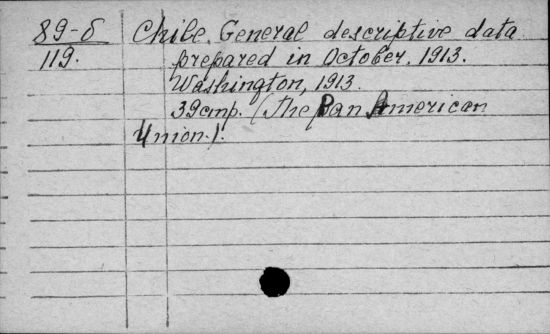 89-6 Chile. General descriptive data
119. prepared in October, 1913.
Washington, 1913.
39 cmp. (The Pan American
Union.).